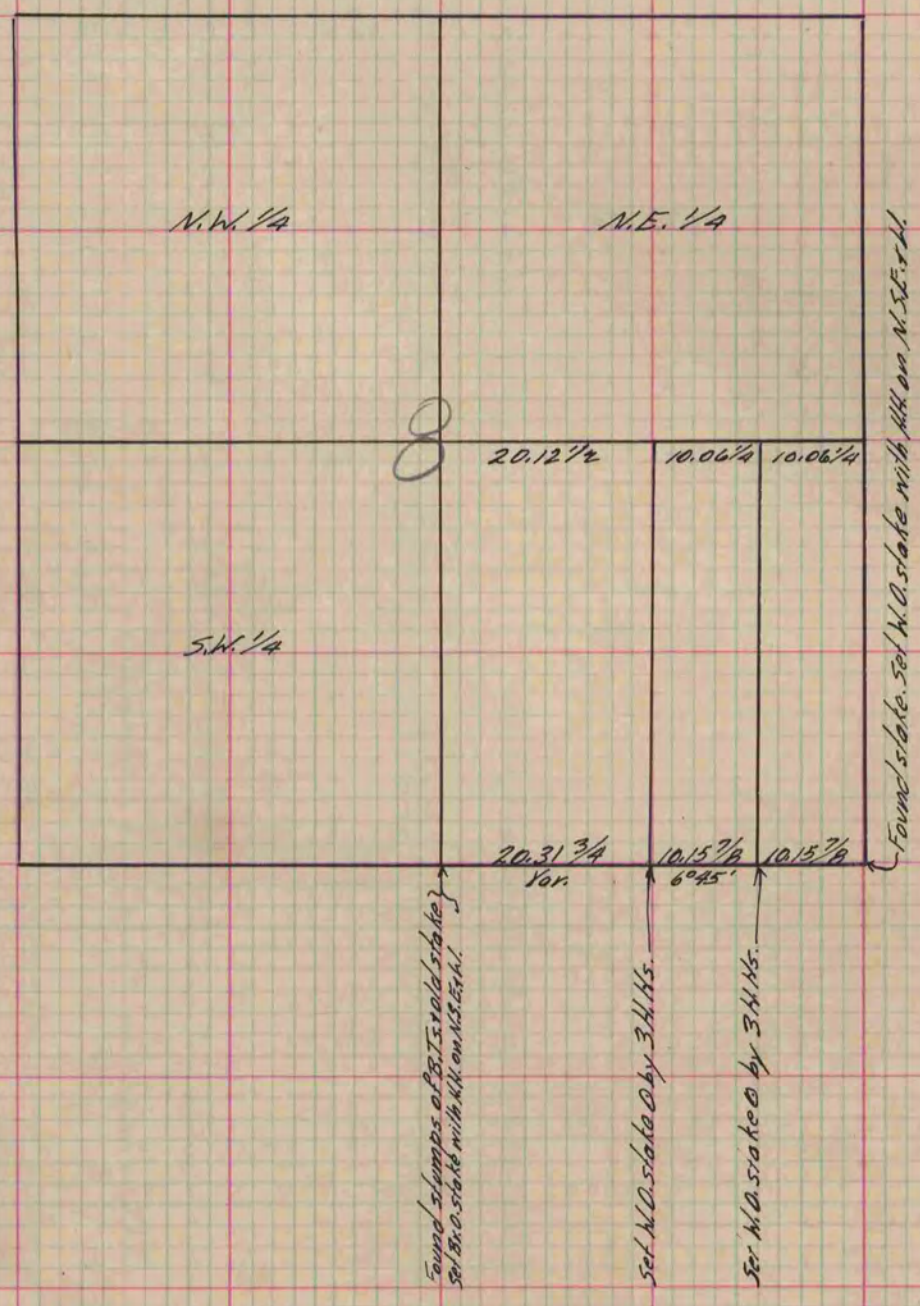 N.W. 1/4
N.E. 1/4
8
20.12 1/2
10.06 1/4
10.06 1/4
S.W. 1/4
20.31 3/4
Var.
10.15 7/8
6°45'
10.15 7/8
Found stumps of B.Ts. & old stake
Set Bx.O. stake with H.H. on N.S.E. & W.
Set W.O. stake by 3 H.Hs.
Set W.O. stake by 3 H.Hs.
Found stake. Set W.O. stake with H.H. on N.S.E. & W.